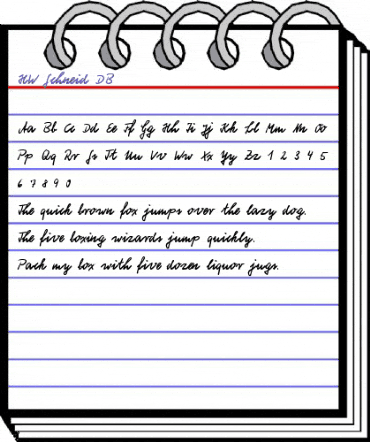 HW Schneid DB
Aa Bb Cc Dd Ee Ff Gg Hh Ii Jj Kk Ll Mm Nn Oo
Pp Qq Rr Ss Tt Uu Vv Ww Xx Yy Zz 1 2 3 4 5
6 7 8 9 0
The quick brown fox jumps over the lazy dog.
The five boxing wizards jump quickly.
Pack my box with five dozen liquor jugs.